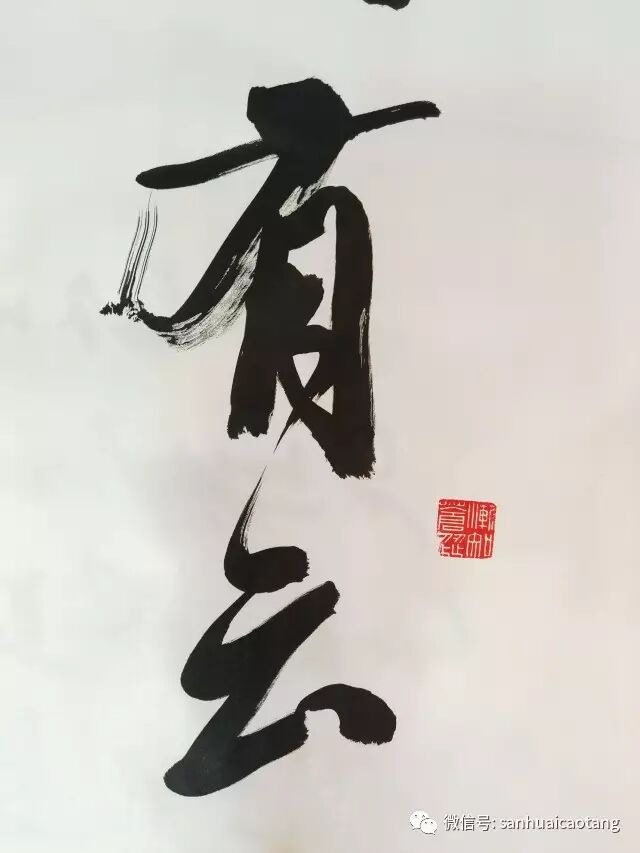 有
云
微信号: sanhuaicaotang